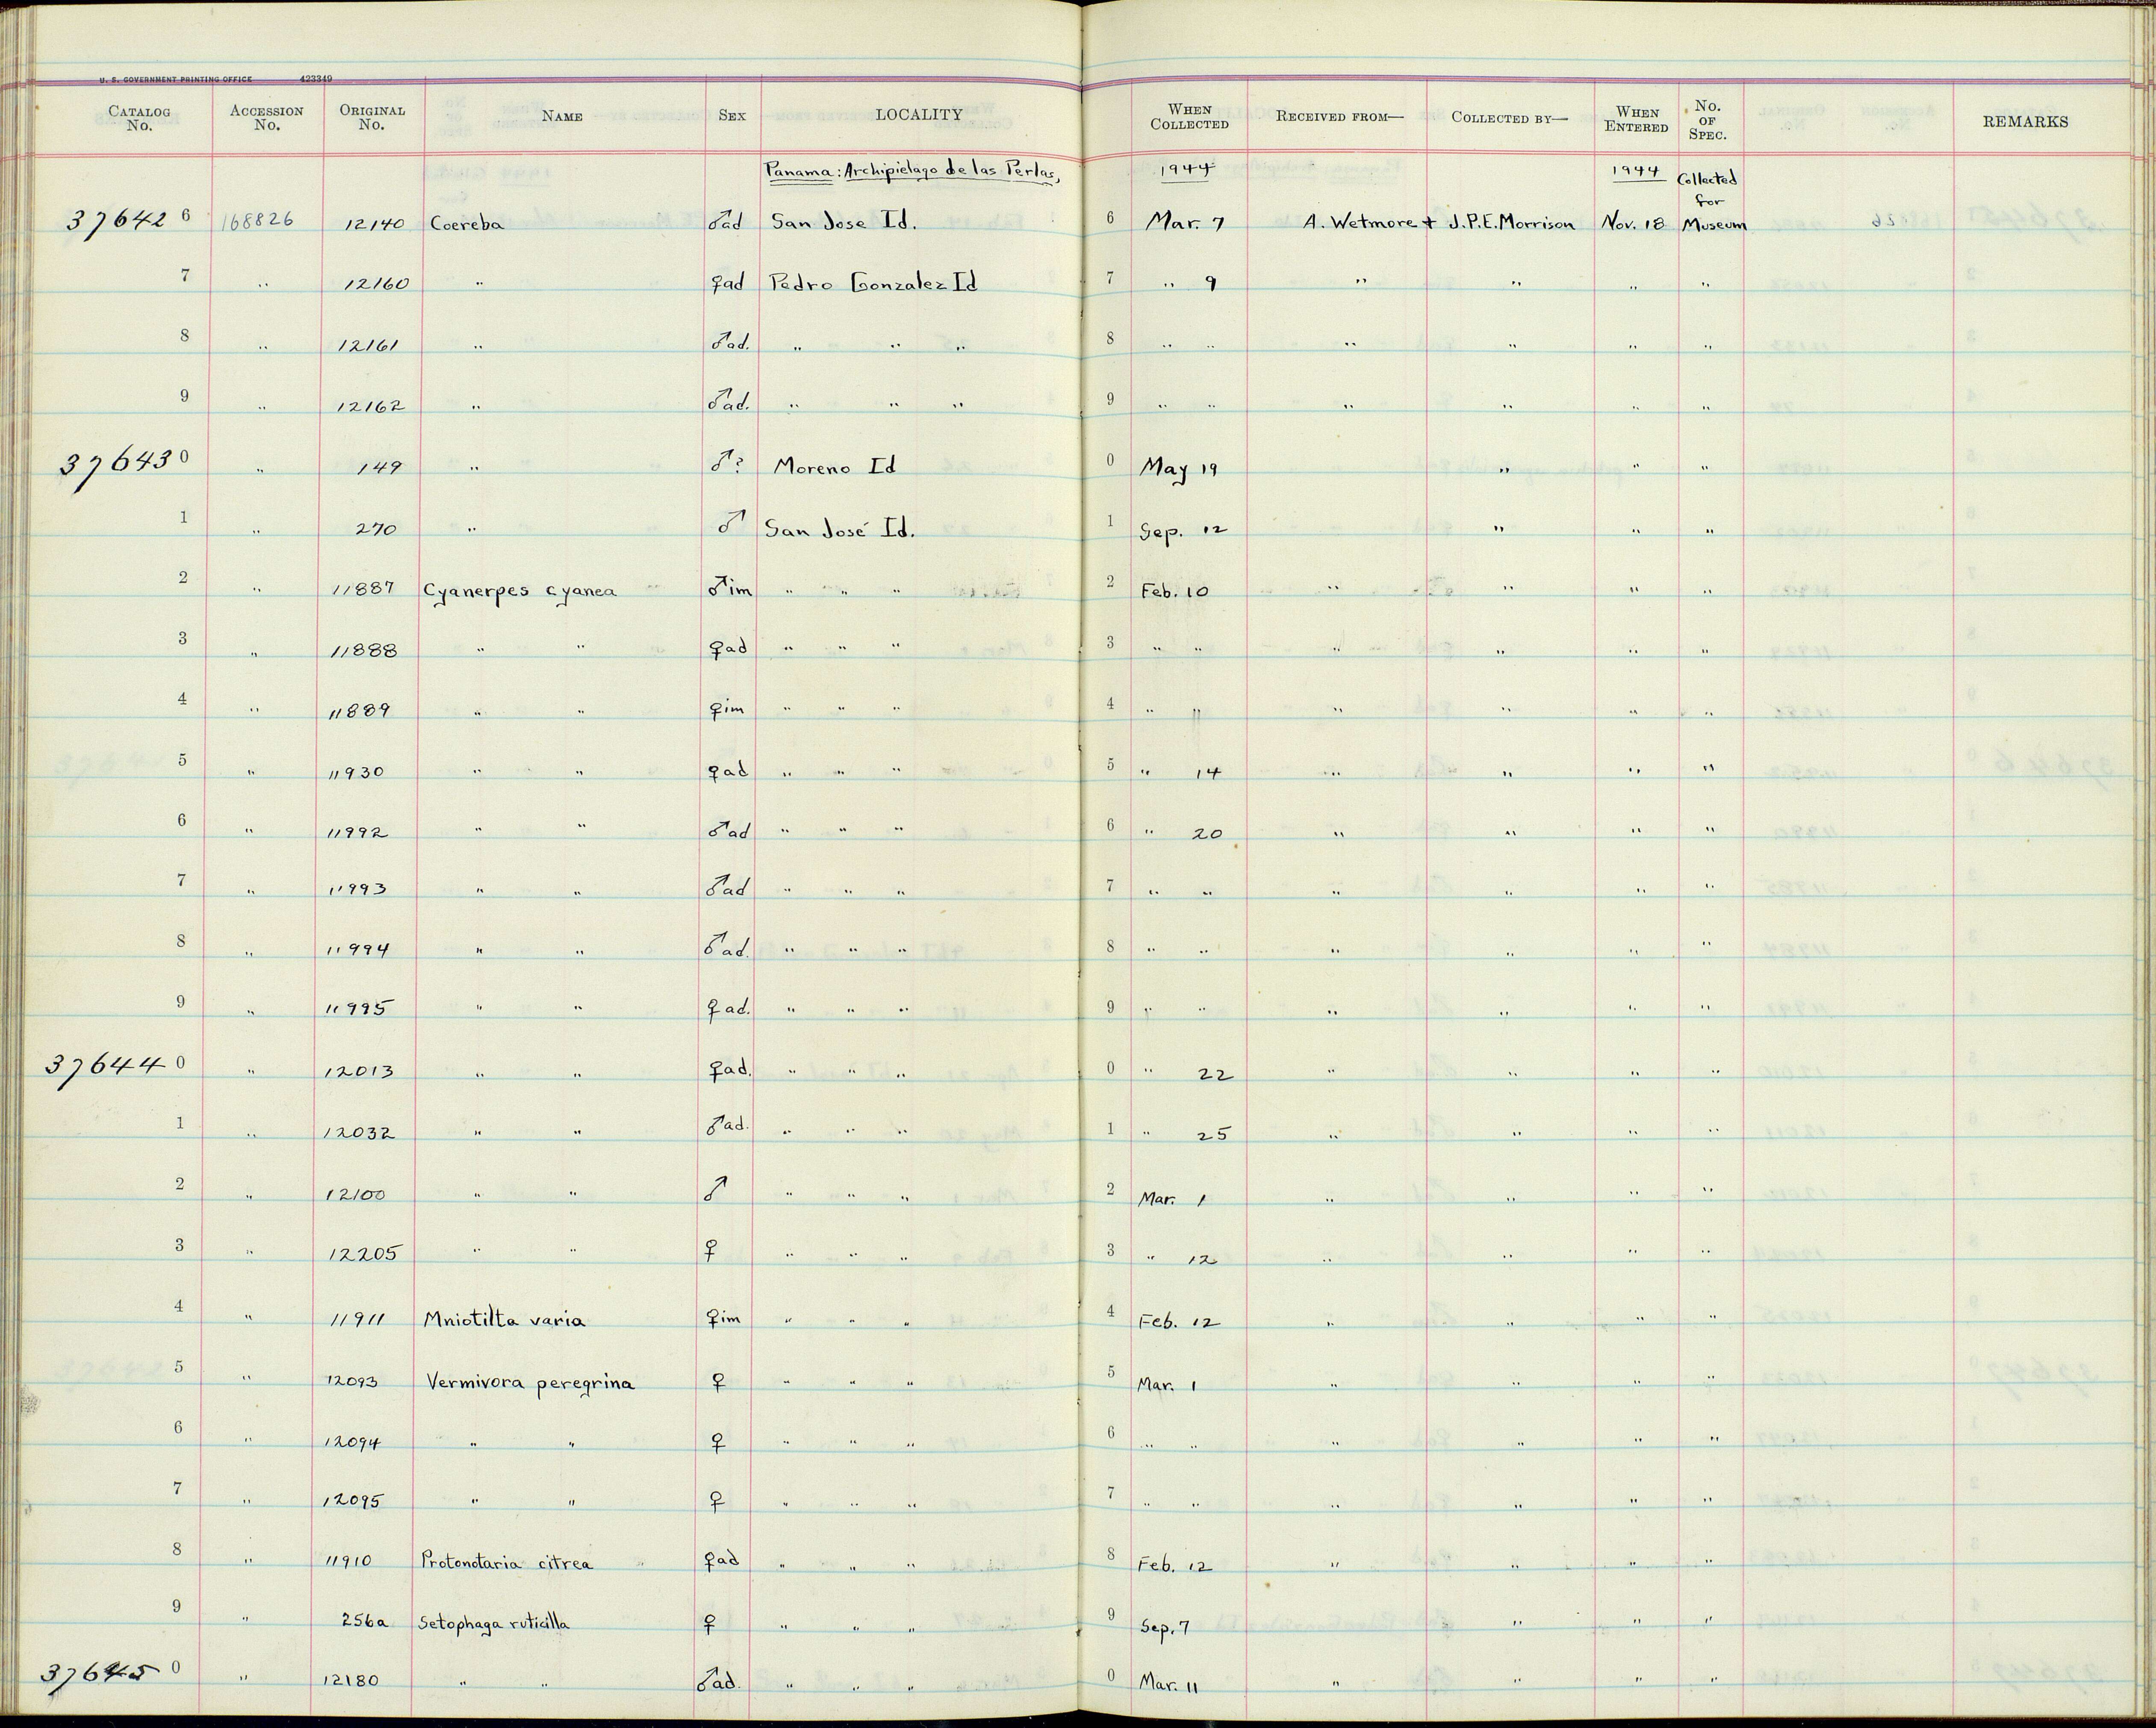 U. S. GOVERNMENT PRINTING OFFICE 423349
CATALOG No. ACCESSION No. ORIGINAL No. NAME SEX LOCALITY WHEN COLLECTED RECEIVED FROM— COLLECTED BY— WHEN ENTERED No. OF SPEC. REMARKS
Panama: Archipielago de las Perlas, 1944 1944 Collected for
37642 6 168826 12140 Coereba ♂ad San Jose Id. 6 Mar. 7 A. Wetmore + J.P.E. Morrison Nov. 18 Museum
7 " 12160 " ♀ad Pedro Gonzalez Id 7 " 9 " " " "
8 " 12161 " ♂ad. " " " 8 " " " " " "
9 " 12162 " ♂ad. " " " 9 " " " " " "
37643 0 " 149 " ♂? Moreno Id 0 May 19 " " "
1 " 270 " ♂ San José Id. 1 Sep. 12 " " "
2 " 11887 Cyanerpes cyanea ♂im " " " 2 Feb. 10 " " " "
3 " 11888 " " ♀ad " " " 3 " " " " " "
4 " 11889 " " ♀im " " " 4 " " " " " "
5 " 11930 " " ♀ad " " " 5 " 14 " " " "
6 " 11992 " " ♂ad " " " 6 " 20 " " " "
7 " 11993 " " ♂ad " " " 7 " " " " " "
8 " 11994 " " ♂ad. " " " 8 " " " " " "
9 " 11995 " " ♀ad. " " " 9 " " " " " "
37644 0 " 12013 " " ♀ad. " " " 0 " 22 " " " "
1 " 12032 " " ♂ad. " " " 1 " 25 " " " "
2 " 12100 " " ♂ " " " 2 Mar. 1 " " " "
3 " 12205 " " ♀ " " " 3 " 12 " " " "
4 " 11911 Mniotilta varia ♀im " " " 4 Feb. 12 " " " "
5 " 12093 Vermivora peregrina ♀ " " " 5 Mar. 1 " " " "
6 " 12094 " " ♀ " " " 6 " " " " " "
7 " 12095 " " ♀ " " " 7 " " " " " "
8 " 11910 Protonotaria citrea ♀ad " " " 8 Feb. 12 " " " "
9 " 256a Setophaga ruticilla ♀ " " " 9 Sep. 7 " " "
37645 0 " 12180 " " ♂ad. " " " 0 Mar. 11 " " " "